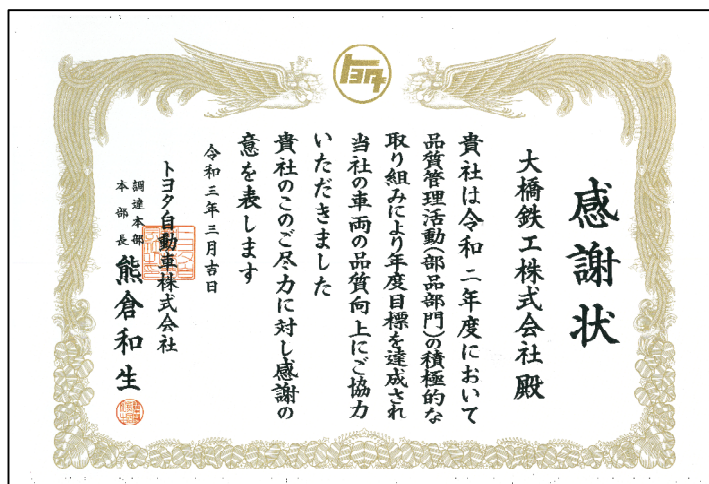 トヨタ
感謝状
大橋鉄工株式会社 殿
貴社は令和二年度において
品質管理活動(部品部門)の積極的な
取り組みにより年度目標を達成され
当社の車両の品質向上にご協力
いただきました
貴社のこのご尽力に対し感謝の
意を表します
令和三年三月吉日
トヨタ自動車株式会社
調達本部
本部長 熊倉和生